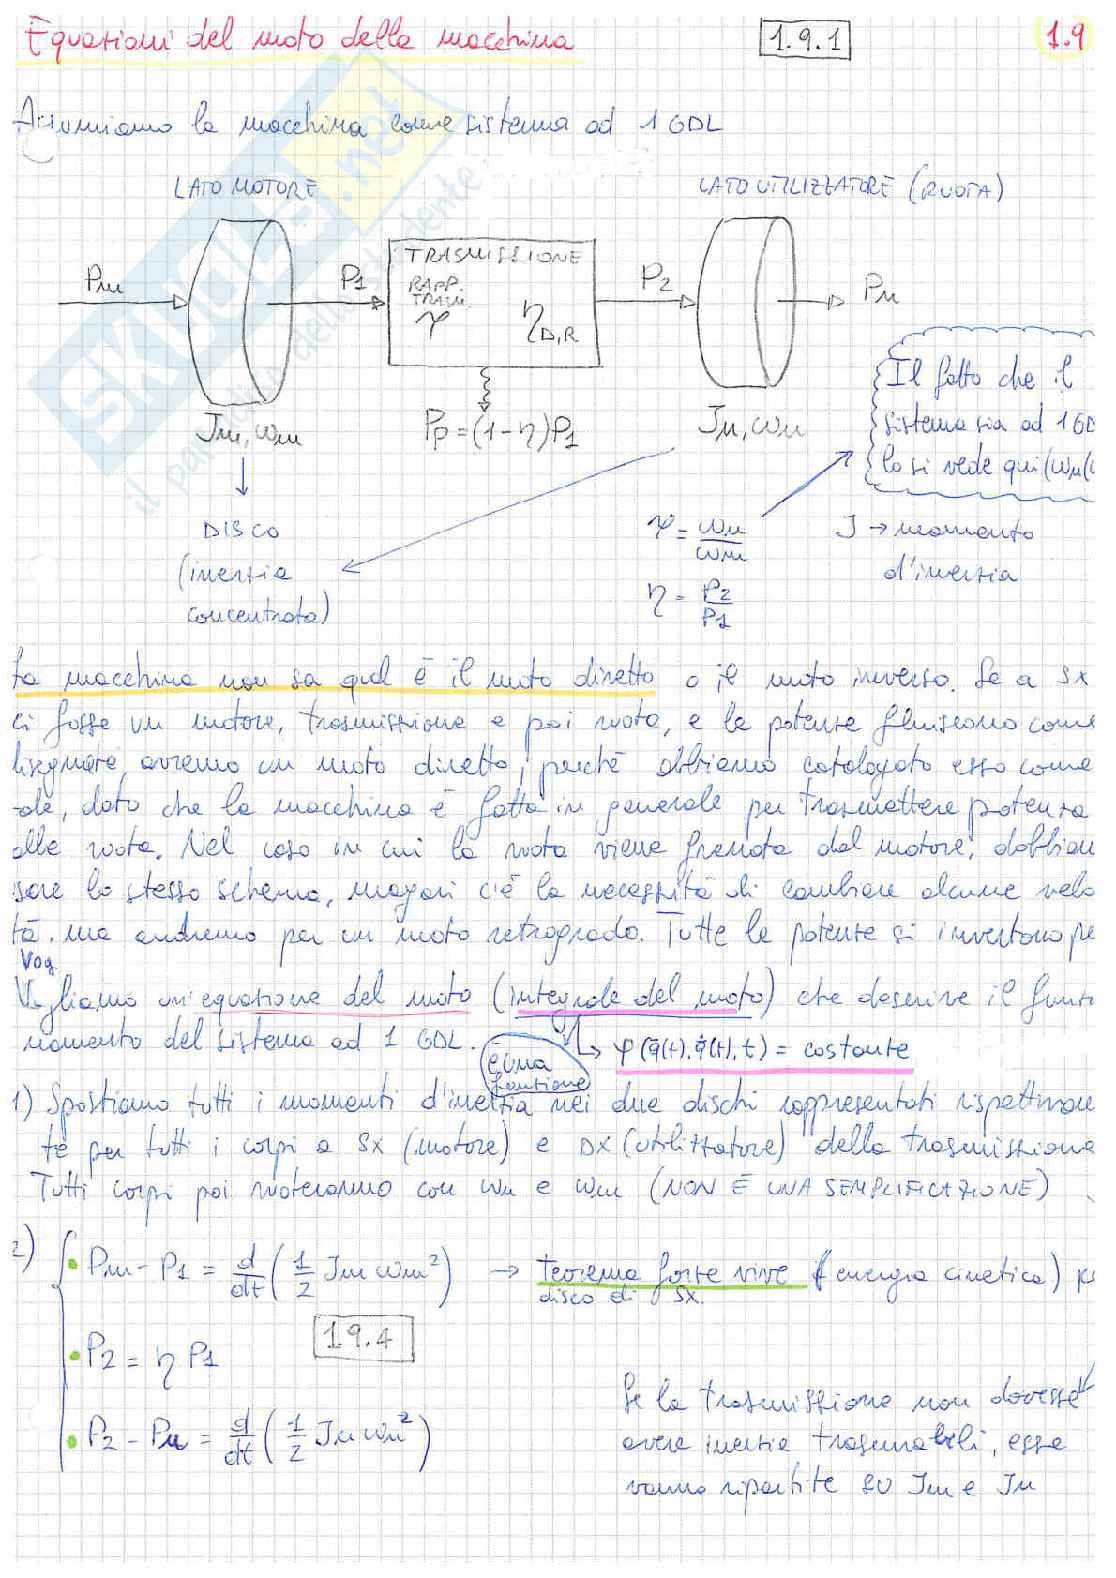 Equazioni del moto della macchina 1.9.1 1.9
Assumiamo la macchina come sistema ad 1 GDL
LATO MOTORE LATO UTILIZZATORE (RUOTA)
Pm P1 TRASMISSIONE P2 Pu
RAPP.
TRASM.
τ η D,R
Jm, ωm Pp = (1-η)P1 Ju, ωu
Il fatto che il
sistema sia ad 1 GD
lo si vede qui (ωu(
DISCO
(inerzia
concentrata)
τ = ωu/ωm
η = P2/P1
J → momento
d'inerzia
La macchina non sa qual è il moto diretto o il moto inverso. Se a sx
ci fosse un motore, trasmissione e poi ruota, e le potenze fluiscono come
disegnate, avremo un moto diretto, perché abbiamo catalogato esso come
ale, dato che la macchina è fatta in generale per trasmettere potenza
alle ruota. Nel caso in cui la ruota viene frenata dal motore, dobbiam
sare lo stesso schema, magari c'è la necessità di cambiare alcune velo
tà. ma andremo per un moto retrogrado. Tutte le potenze si invertono pe
Vog
Vogliamo un'equazione del moto (integrale del moto) che descrive il funzi
namento del sistema ad 1 GDL.
è una
funzione
φ(q(t), q̇(t), t) = costante
1) Spostiamo tutti i momenti d'inerzia nei due dischi rappresentati rispettivame
te per tutti i corpi a SX (motore) e DX (utilizzatore) della trasmissione
Tutti corpi poi ruoteranno con ωu e ωm (NON È UNA SEMPLIFICAZIONE)
2) Pm - P1 = d/dt (1/2 Jm ωm²) → teorema forze vive (energia cinetica)
disco di SX.
1.9.4
P2 = η P1
P2 - Pu = d/dt (1/2 Ju ωu²)
Se la trasmissione non dovesse
avere inerzie trascurabili, esse
vanno ripartite su Jm e Ju
SKUOLA.net
il paradiso dello studente